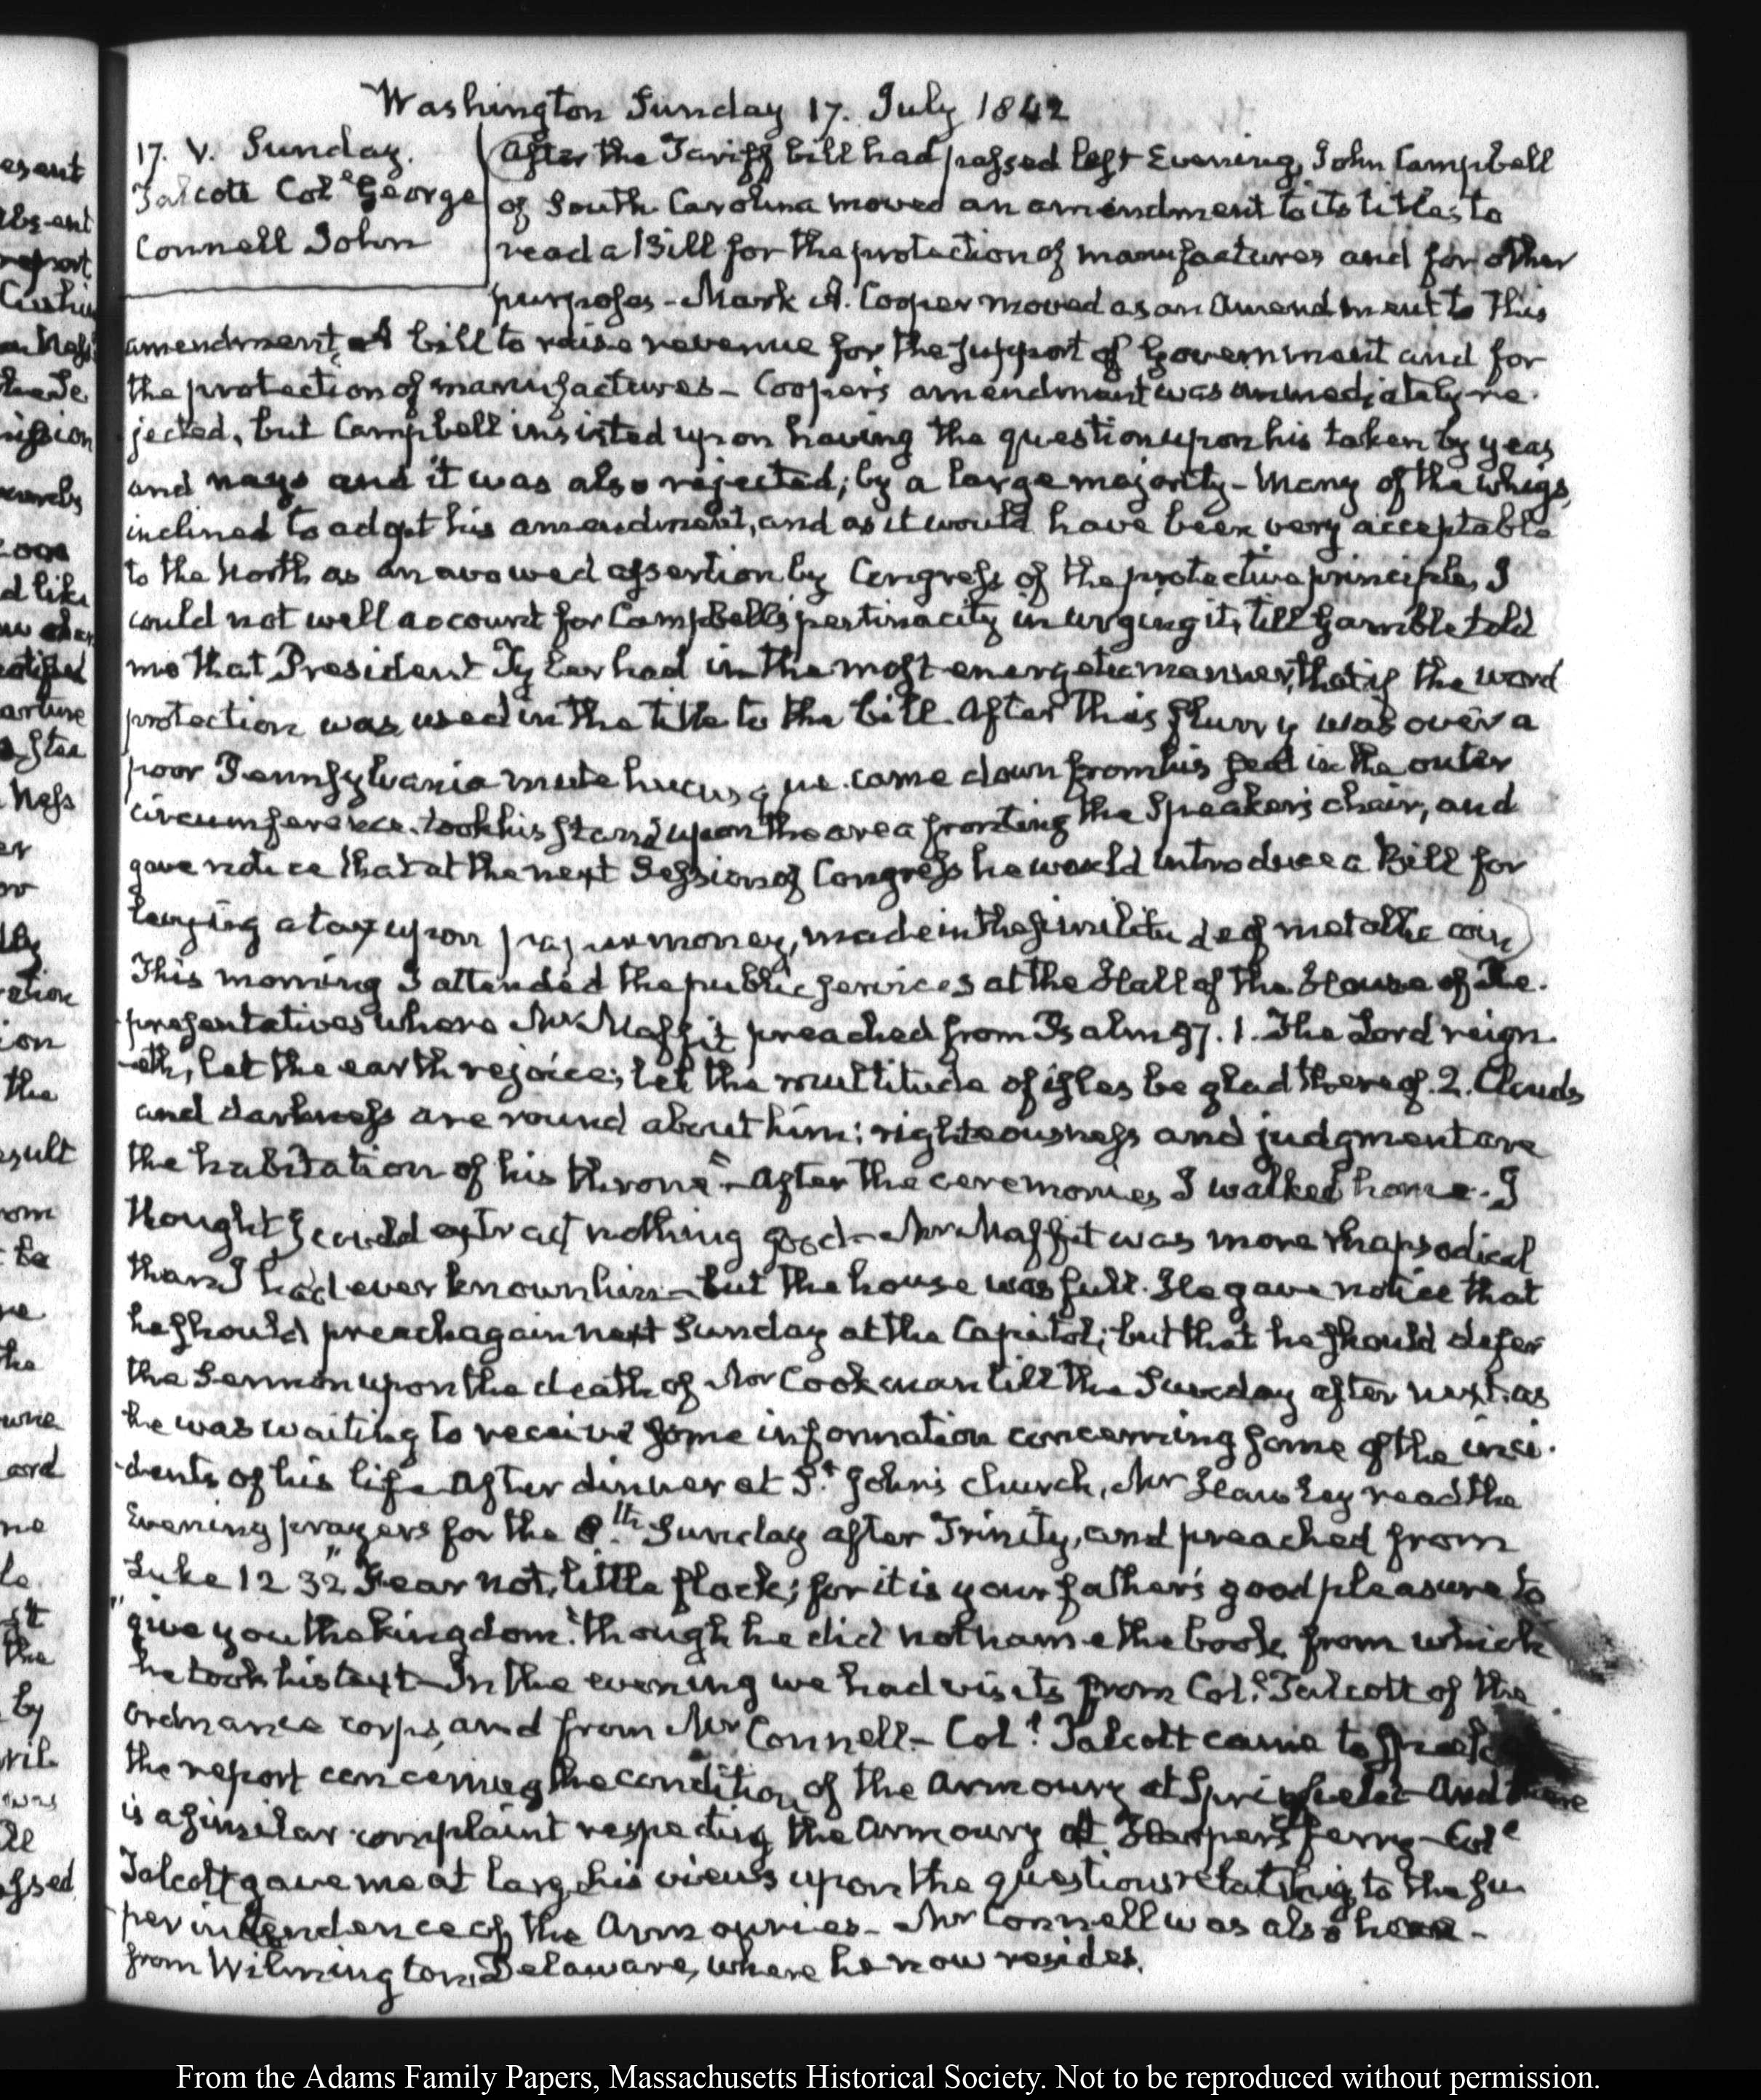 Washington Sunday 17. July 1842
17. V. Sunday.
Talcott Col.e George
Connell John
After the Tariff bill had passed last Evening, John Campbell
of South Carolina moved an amendment to its title; to
read a Bill for the protection of manufactures and for other
purposes - Mark A. Cooper moved as an Amendment to this
amendment, A bill to raise revenue for the support of Government and for
the protection of manufactures - Cooper's amendment was immediately re-
jected, but Campbell insisted upon having the question upon his taken by yeas
and nays and it was also rejected; by a large majority - Many of the whigs,
inclined to adopt his amendment, and as it would have been very acceptable
to the North as an avowed assertion by Congress of the protective principle, I
could not well account for Campbell's pertinacity in urging it, till Gamble told
me that President Tyler had in the most energetic manner, that if the word
protection was used in the title to the bill. After this flurry was over a
poor Pennsylvania mute hucusque came down from his seat in the outer
circumference, took his stand upon the area fronting the Speaker's chair, and
gave notice that at the next Session of Congress he would introduce a Bill for
laying a tax upon paper money, made in the similitude of metallic coin)
This morning I attended the public services at the Hall of the House of Re-
presentatives where Mr Maffit preached from Psalm 97. 1. The Lord reign-
-eth, let the earth rejoice; let the multitude of isles be glad thereof. 2. Clouds
and darkness are round about him: righteousness and judgment are
the habitation of his throne" - After the ceremonies, I walked home. I
thought I could extract nothing good - Mr Maffit was more rhapsodical
than I had ever known him - but the house was full. He gave notice that
he should preach again next Sunday at the Capitol; but that he should defer
the Sermon upon the death of Mr Cookman till the Sunday after next, as
he was waiting to receive some information concerning some of the inci-
-dents of his life - After dinner at St John's church, Mr Hawley read the
Evening prayers for the 8th Sunday after Trinity, and preached from
Luke 12 32 "Fear not, little flock; for it is your father's good pleasure to
"give you the kingdom." though he did not name the book from which
he took his text - In the evening we had visits from Col.e Talcott of the
Ordnance corps, and from Mr Connell - Col.l Talcott came to
the report concerning the condition of the Armoury at Springfield - And there
is a similar complaint respecting the Armoury at Harper's ferry - Col.e
Talcott gave me at large his views upon the questions relating to the su
-perintendence of the Armouries - Mr Connell was also here -
from Wilmington, Delaware, where he now resides.
esent
absent
report
mission
like
the
ction
ion
the
esult
om
to
he
the
ord
me
st
the
by
was
ll
assed
From the Adams Family Papers, Massachusetts Historical Society. Not to be reproduced without permission.